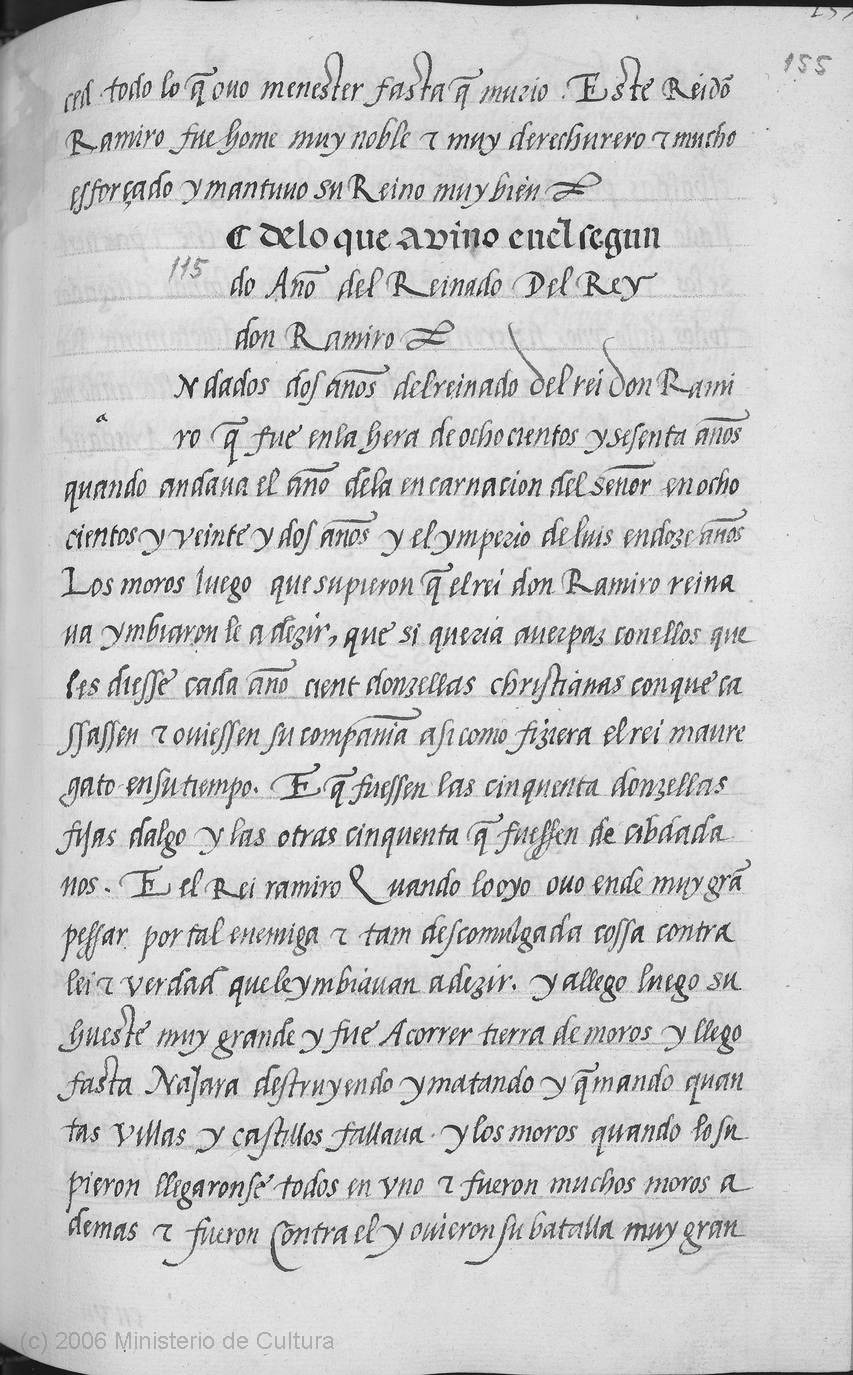 155
ced todo lo q̃ ouo menester fasta q̃ murio . Este Rei dõ
Ramiro fue home muy noble τ muy derechurero τ mucho
esforçado y mantuuo su Reino muy bien
C delo que avino enel segun
115
do Año del Reinado Del Rey
don Ramiro
N dados dos años del reinado del rei don Rami
a
ro q̃ fue en la hera de ochocientos y sesenta años
quando andaua el año dela encarnacion del señor en ocho
cientos y veinte y dos años y el ymperio de luis en doze años
Los moros luego que supieron q̃ el rei don Ramiro reina
ua ymbiaron le a dezir, que si queria auer paz con ellos que
les diesse cada año cient donzellas christianas con que ca
ssassen τ oviessen su compania asi como fiziera el rei maure
gato en su tiempo. E q̃ fuessen las cinquenta donzellas
fijas dalgo y las otras cinquenta q̃ fuessen de cibdada
nos. E el Rei ramiro Quando lo oyo ouo ende muy grã
pessar por tal enemiga τ tam descomulgada cossa contra
lei τ verdad que le ymbiauan a dezir. y allego luego su
hueste muy grande y fue Acorrer tierra de moros y llego
fasta Najara destruyendo y matando y q̃mando quan
tas villas y castillos fallaua . y los moros quando lo su
pieron llegaronse todos en vno τ fueron muchos moros a
demas τ fueron Contra el y ovieron su batalla muy gran
(c) 2006 Ministerio de Cultura